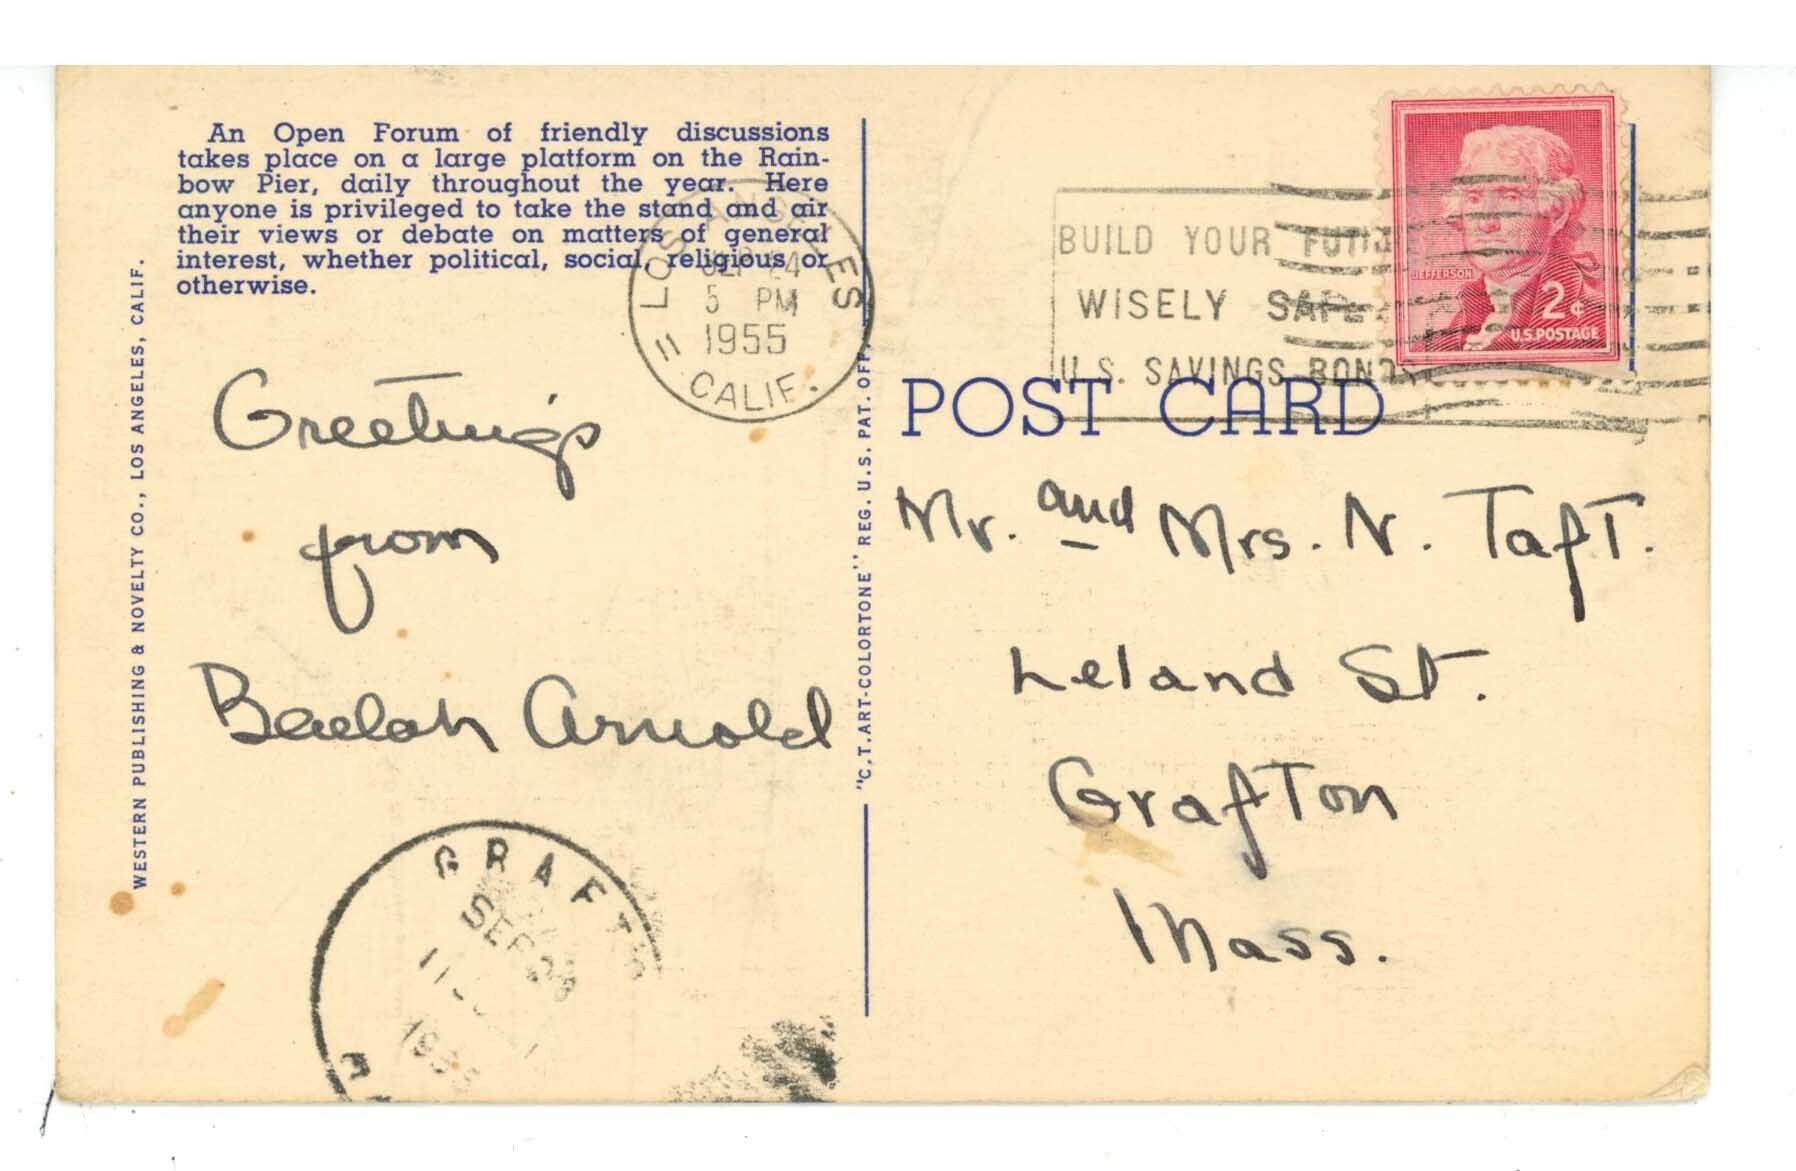 An Open Forum of friendly discussions
takes place on a large platform on the Rain-
bow Pier, daily throughout the year. Here
anyone is privileged to take the stand and air
their views or debate on matters of general
interest, whether political, social, religious or
otherwise.
WESTERN PUBLISHING & NOVELTY CO., LOS ANGELES, CALIF.
LOS ANGELES
SEP 24
5 PM
1955
CALIF.
Greetings
from
Beulah Arnold
GRAFTO
SEP
1955
"C.T. ART-COLORTONE" REG. U.S. PAT. OFF.
BUILD YOUR FUTURE
WISELY SAFELY
U.S. SAVINGS BONDS
JEFFERSON
2¢
U.S. POSTAGE
POST CARD
Mr. and Mrs. N. Taft.
Leland St.
Grafton
Mass.